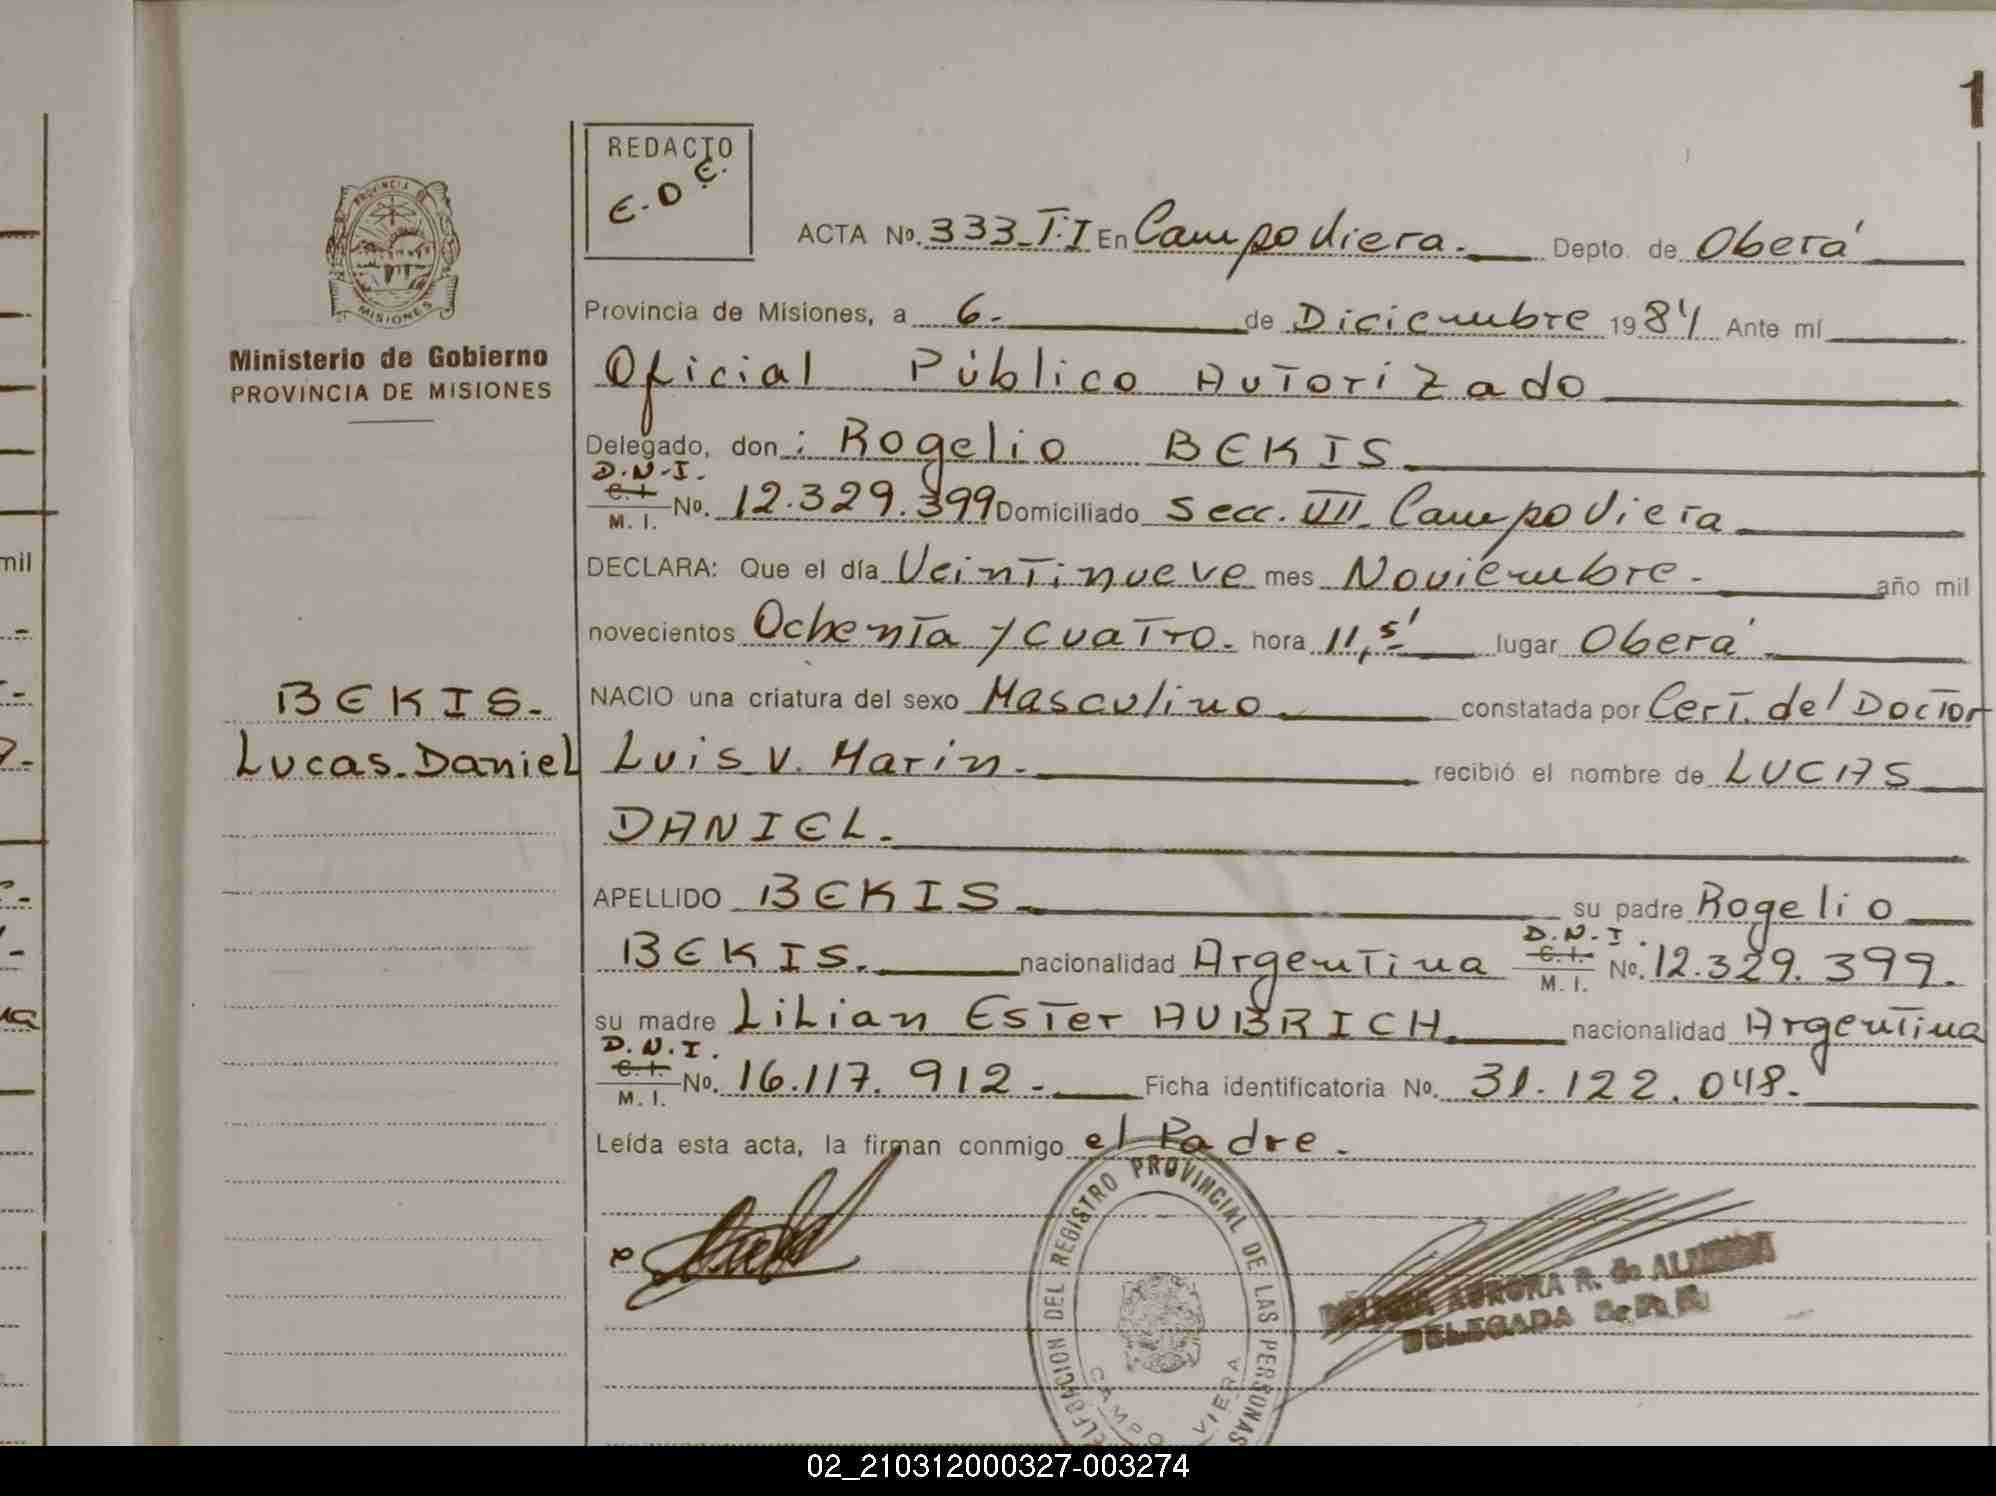 1
REDACTO
E.D.E.
PROVINCIA DE
MISIONES
Ministerio de Gobierno
PROVINCIA DE MISIONES
ACTA No. 333-T.I En Campo Viera. Depto. de Oberá
Provincia de Misiones, a 6.- de Diciembre 1984 Ante mí
Oficial Público Autorizado
Delegado, don : Rogelio BEKIS
D.N.I.
C.I.
M. I. No. 12.329.399 Domiciliado Secc. VII Campo Viera
DECLARA: Que el día Veintinueve mes Noviembre.- año mil
mil
novecientos Ochenta y Cuatro.- hora 11,5' lugar Oberá
BEKIS.-
NACIO una criatura del sexo Masculino constatada por Cert. del Doctor
Lucas.Daniel
Luis V. Marin.- recibió el nombre de LUCAS
DANIEL.-
APELLIDO BEKIS su padre Rogelio
BEKIS. nacionalidad Argentina D.N.I. C.I. M. I. No. 12.329.399.
su madre Lilian Ester AUBRICH. nacionalidad Argentina
D.N.I.
C.I.
M. I. No. 16.117.912.- Ficha identificatoria No. 31.122.048.-
Leída esta acta, la firman conmigo el Padre.-
DEL REGISTRO PROVINCIAL DE LAS PERSONAS
CAMPO VIERA
AURORA R. de
DELEGADA
02_210312000327-003274